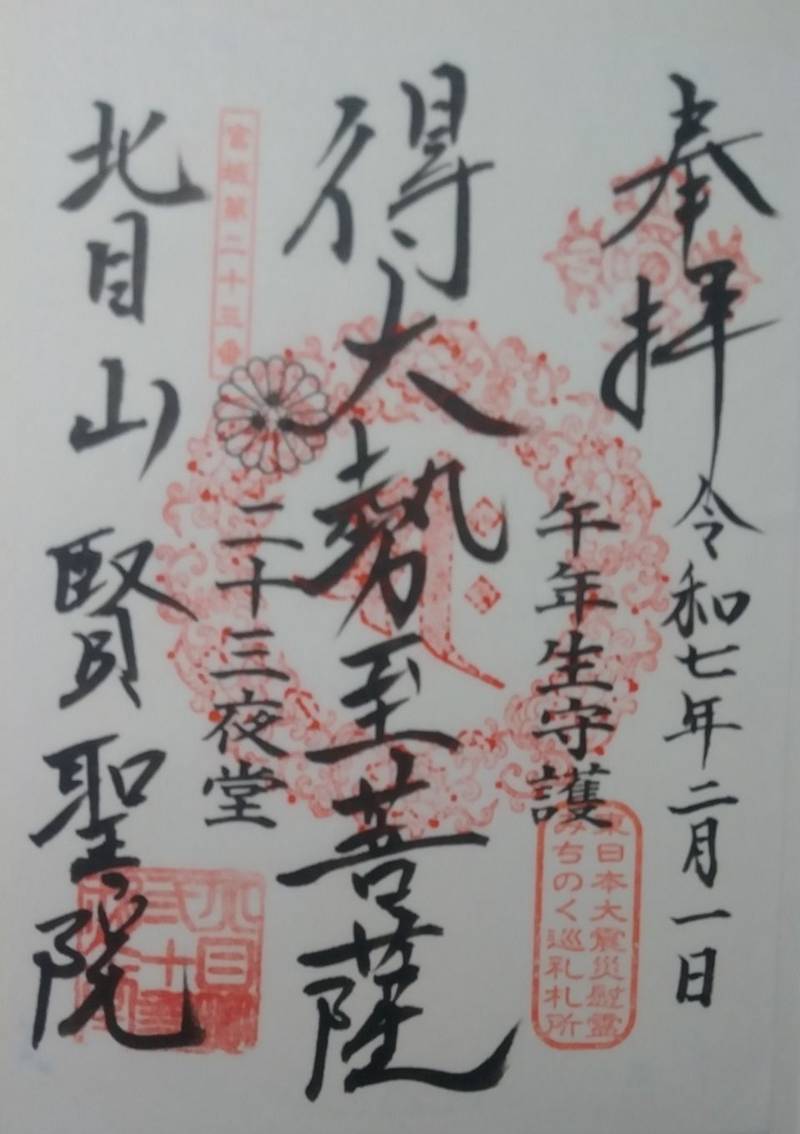 奉拝
令和七年二月一日
午年生守護
東日本大震災慰霊
みちのく巡礼札所
得大勢至菩薩
二十三夜堂
宮城第二十三番
北目山 賢聖院